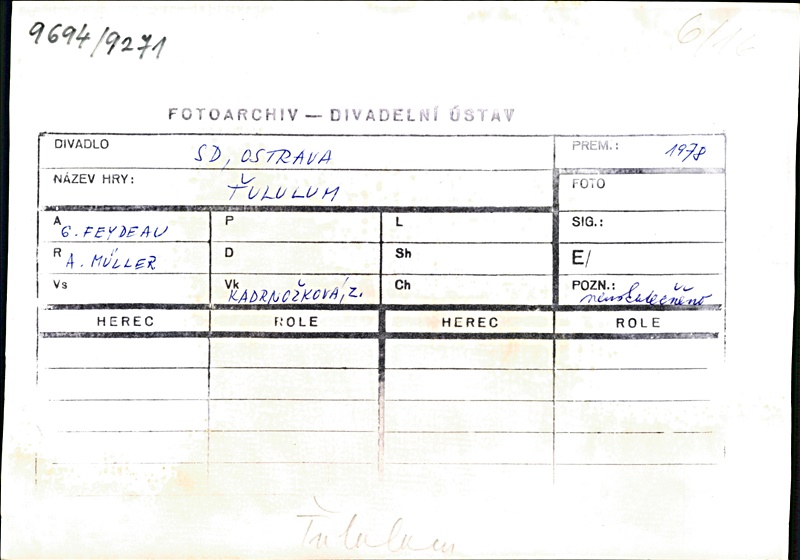 9694/9271
6/16
FOTOARCHIV — DIVADELNÍ ÚSTAV
DIVADLO SD, OSTRAVA PREM.: 1978
NÁZEV HRY: ŤULULUM FOTO
A G. FEYDEAU P L SIG.:
R A. MÜLLER D Sh E/
Vs Vk KADRNOŽKOVÁ, Z. Ch POZN.: neuskutečněno
HEREC ROLE HEREC ROLE
Ťululum